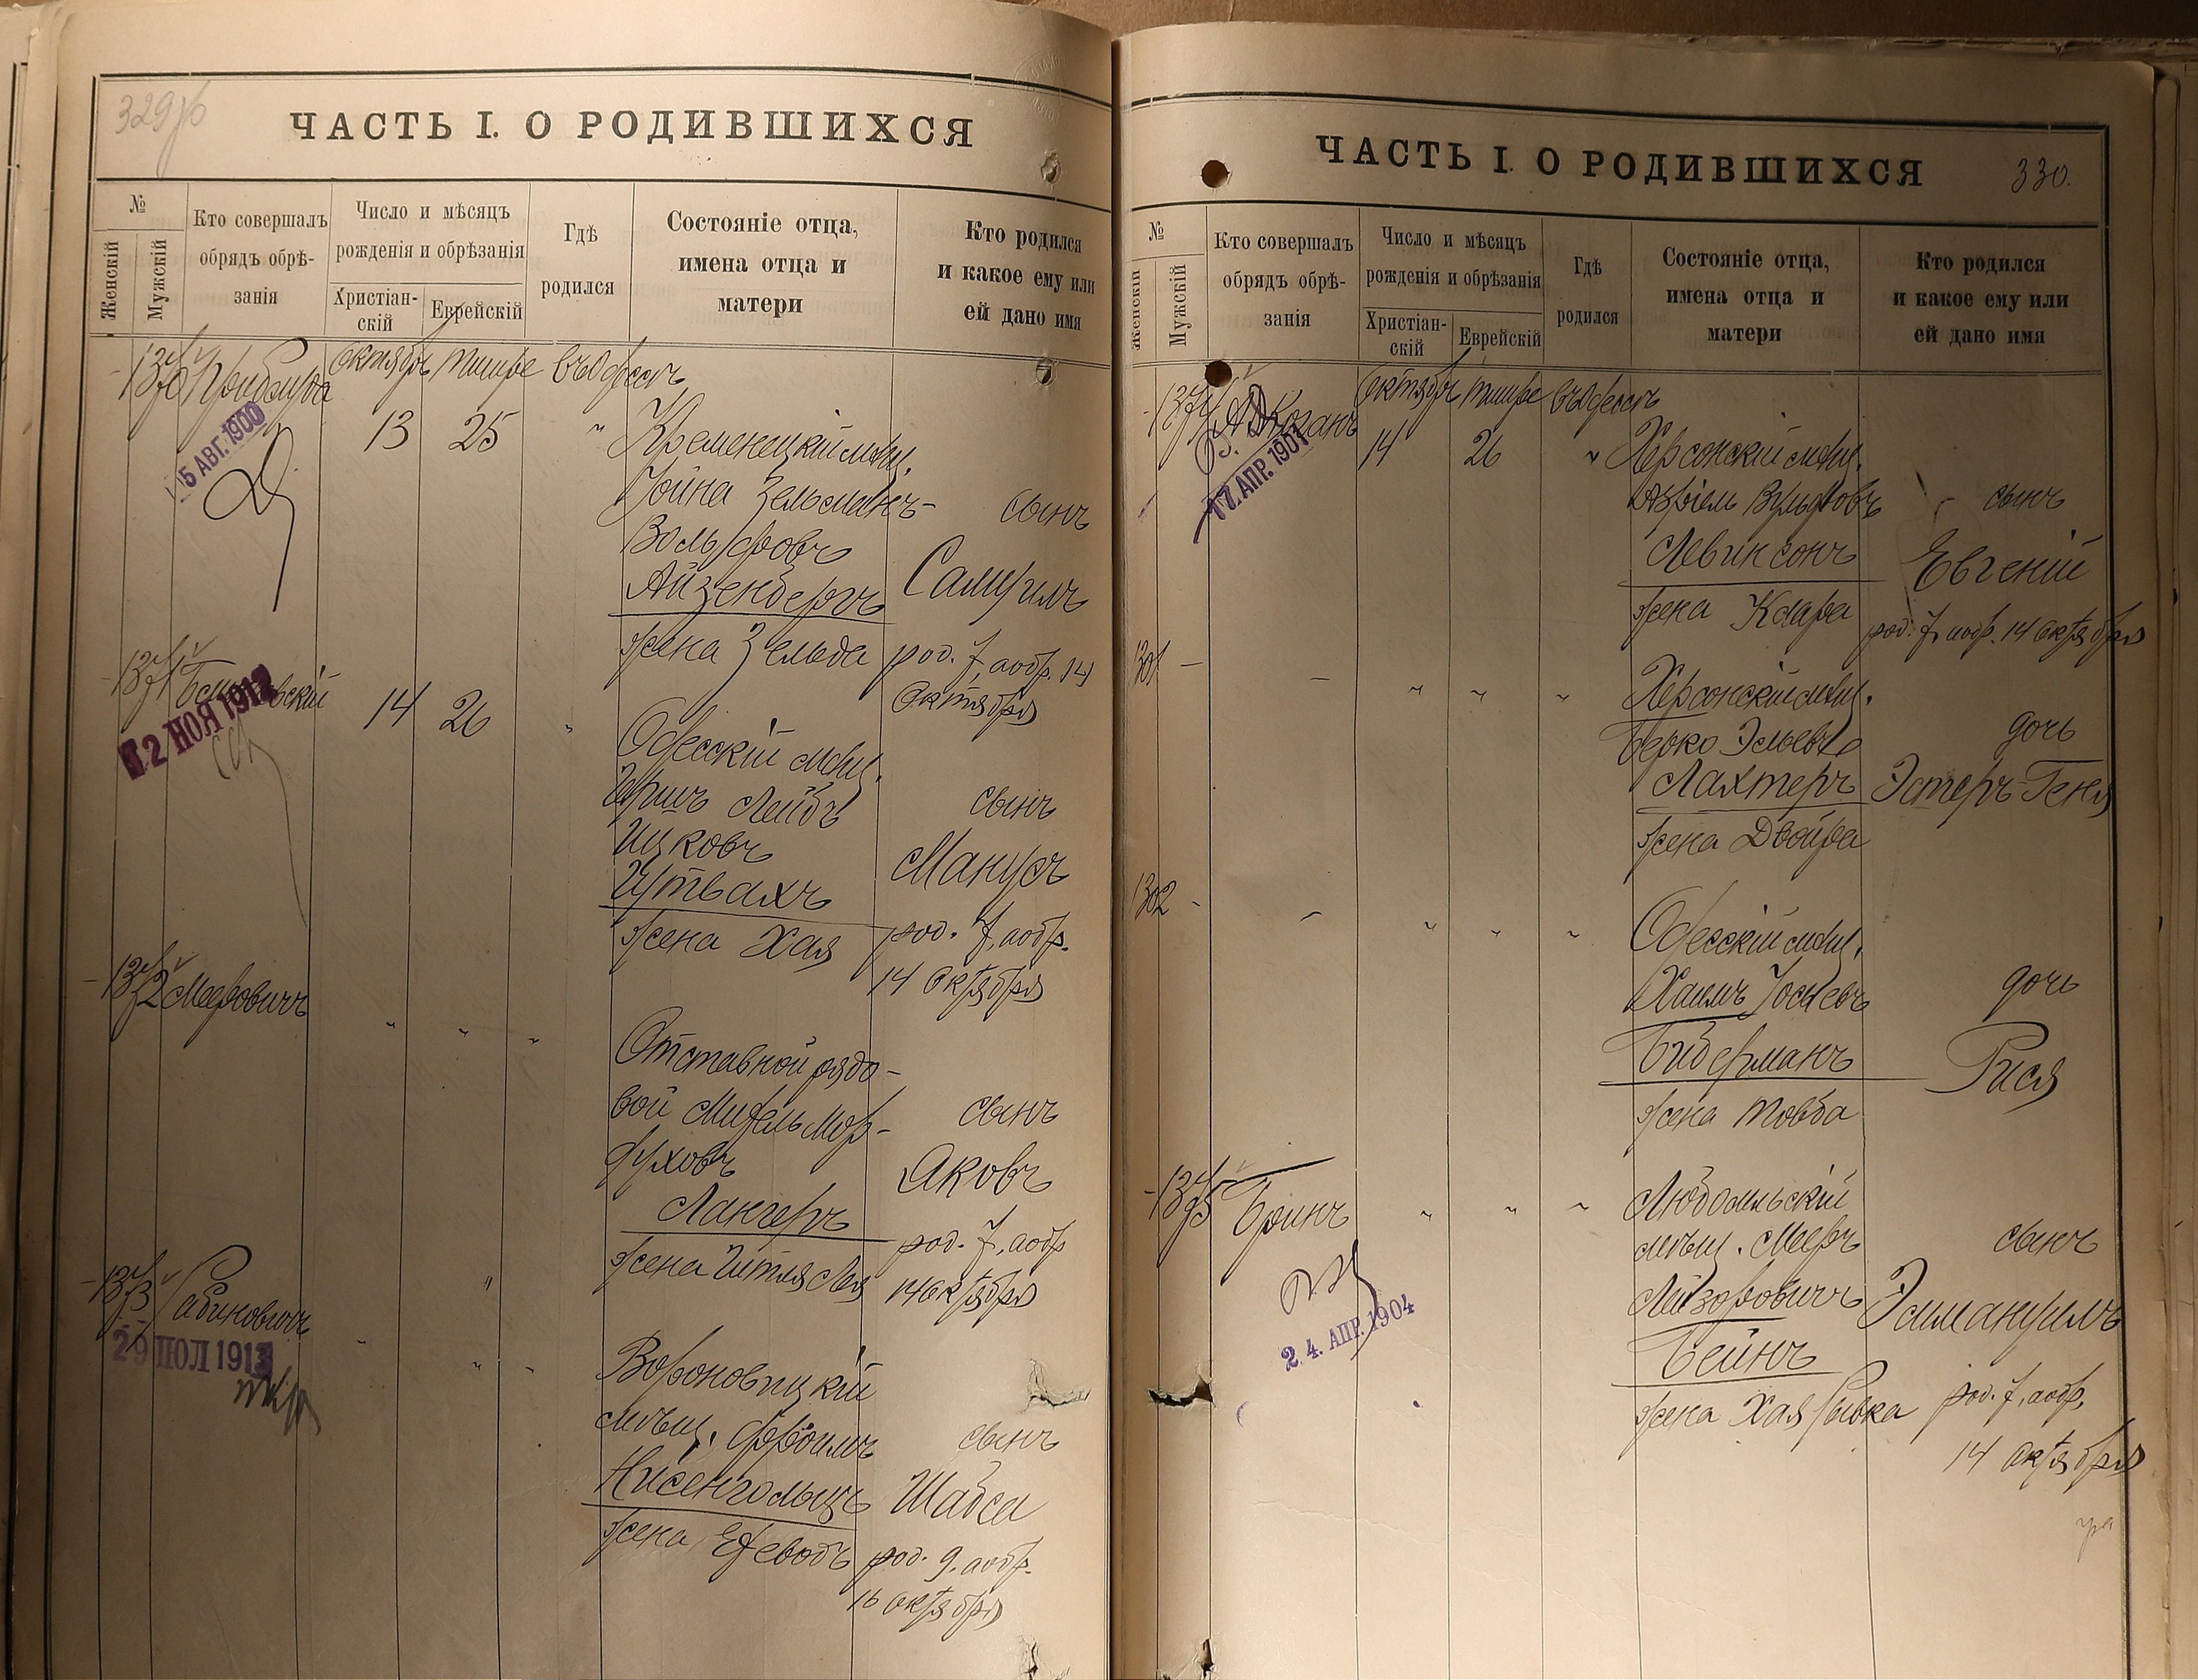 329об
ЧАСТЬ I. О РОДИВШИХСЯ
№
Женскій
Мужскій
Кто совершалъ
обрядъ обрѣ-
занія
Число и мѣсяцъ
рожденія и обрѣзанія
Христіан-
скій
Еврейскій
Гдѣ
родился
Состояніе отца,
имена отца и
матери
Кто родился
и какое ему или
ей дано имя
октябрь тишре въ Одессѣ
5 АВГ. 1900
13 25 "
Кременецкій мѣщ.
Іойна Зельманъ-
Вольфовъ
Айзенбергъ
жена Зельда
сынъ
Самуилъ
род. 7, а обр. 14
октября
1371
12 НОЯ 1912
14 26 "
Одесскій мѣщ.
Гершъ Лейбъ
Ицковъ
Гутвахъ
жена Хая
сынъ
Манусъ
род. 7, а обр.
14 октября
1372 Мееровичъ " " "
Отставной рядо-
вой Михель Мор-
духовъ
Лангеръ
жена Гитля Лея
сынъ
Яковъ
род. 7, а обр
14 октября
1373 Рабиновичъ
29 ІЮЛ 1913
Вороновицкій
мѣщ. Фроимъ
Нисенгольцъ
жена
сынъ
Шабса
род. 9, а обр.
16 октября
ЧАСТЬ I. О РОДИВШИХСЯ
330.
№
Женскій
Мужскій
Кто совершалъ
обрядъ обрѣ-
занія
Число и мѣсяцъ
рожденія и обрѣзанія
Христіан-
скій
Еврейскій
Гдѣ
родился
Состояніе отца,
имена отца и
матери
Кто родился
и какое ему или
ей дано имя
1374 Коганъ октябрь тишре въ Одессѣ
17 АПР. 1901
14 26 "
Херсонскій мѣщ.
Азріель Вульфовъ
Левинсонъ
жена Клара
сынъ
Евгеній
род. 7, а обр. 14 октября
1301 - - " " "
Херсонскій мѣщ.
Берко Эльевъ
Лахтеръ
жена Двойра
дочь
Эстеръ-Геня
1302 - - " " "
Одесскій мѣщ.
Хаимъ Іосьевъ
Бидерманъ
жена Товба
дочь
Рися
1375 Бринъ " " "
24. АПР. 1904
Любомльскій
мѣщ. Мееръ
Лейзоровичъ
Бейнъ
жена Хая Рывка
сынъ
Эммануилъ
род. 7, а обр.
14 октября